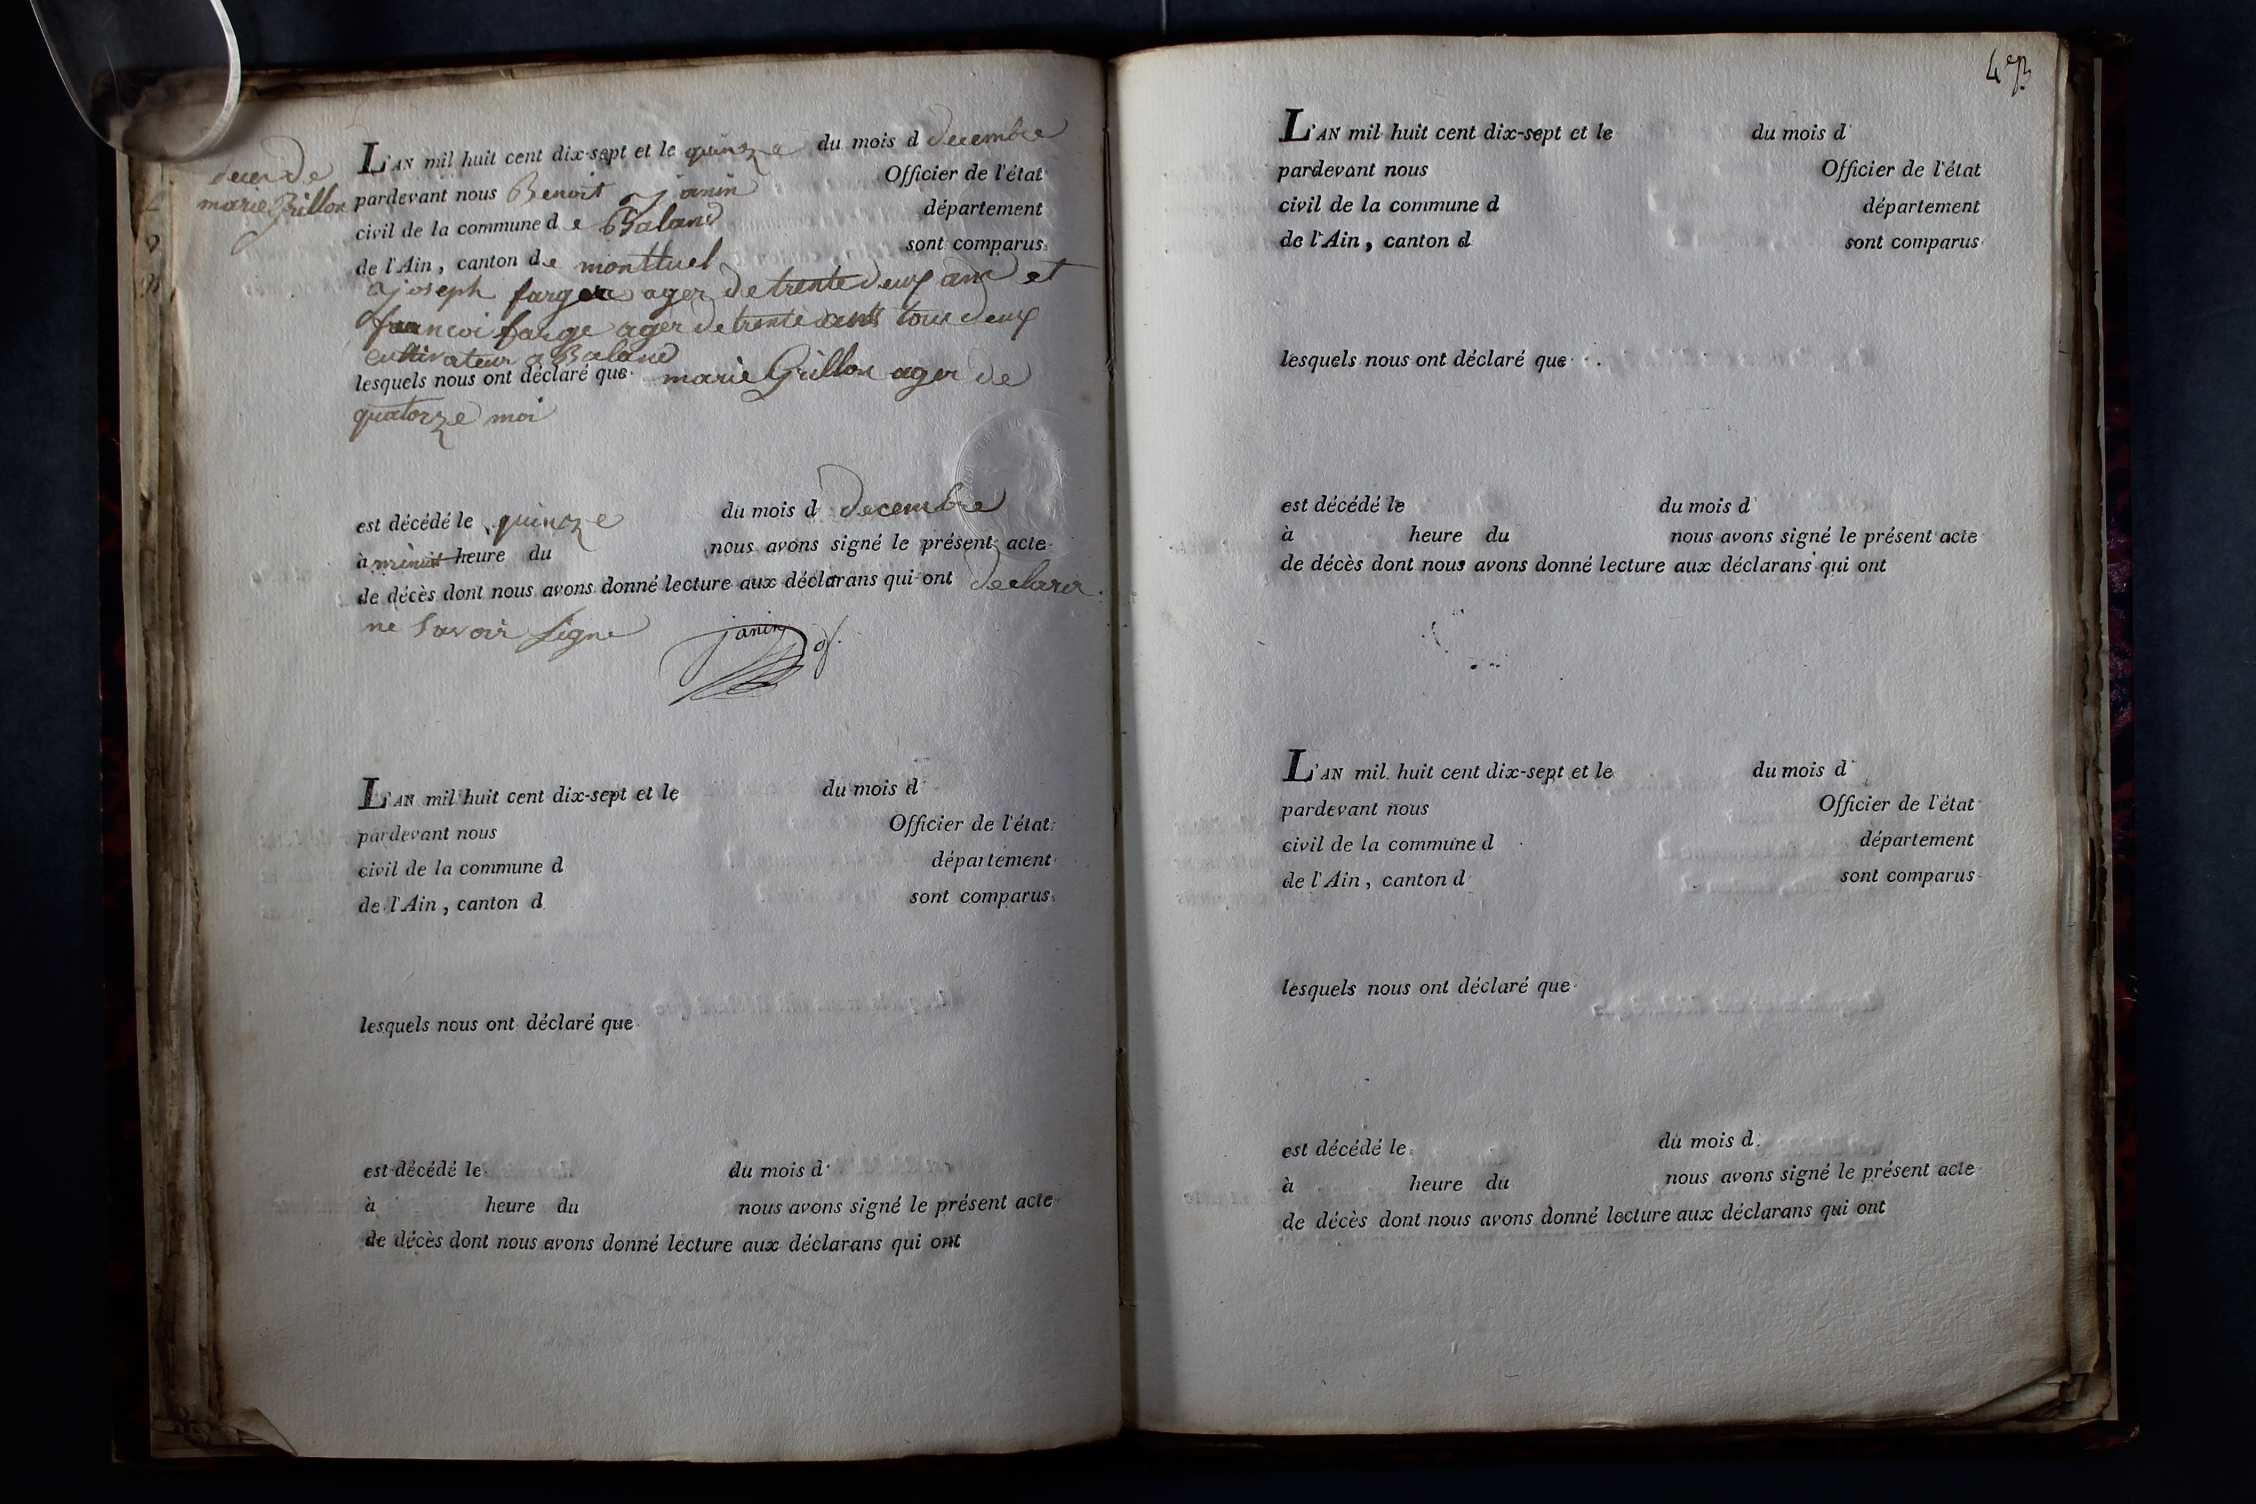 deces de
marie Grillon
L'AN mil huit cent dix-sept et le quinze du mois d decembre
pardevant nous Benoit janin Officier de l'état
civil de la commune d e Baland département
de l'Ain, canton de montluel sont comparus
joseph farge ager de trente deux ans et
francoi farge ager de trente ans tous deux
cultivateur a Baland
lesquels nous ont déclaré que marie Grillon ager de
quatorze moi
est décédé le quinze du mois d decembre
à minuit heure du nous avons signé le présent acte
de décès dont nous avons donné lecture aux déclarans qui ont declarer
ne savoir signe
janin
L'AN mil huit cent dix-sept et le du mois d
pardevant nous Officier de l'état
civil de la commune d département
de l'Ain, canton d sont comparus
lesquels nous ont déclaré que
est décédé le du mois d
à heure du nous avons signé le présent acte
de décès dont nous avons donné lecture aux déclarans qui ont
L'AN mil huit cent dix-sept et le du mois d
pardevant nous Officier de l'état
civil de la commune d département
de l'Ain, canton d sont comparus
lesquels nous ont déclaré que
est décédé le du mois d
à heure du nous avons signé le présent acte
de décès dont nous avons donné lecture aux déclarans qui ont
L'AN mil huit cent dix-sept et le du mois d
pardevant nous Officier de l'état
civil de la commune d département
de l'Ain, canton d sont comparus
lesquels nous ont déclaré que
est décédé le du mois d
à heure du nous avons signé le présent acte
de décès dont nous avons donné lecture aux déclarans qui ont